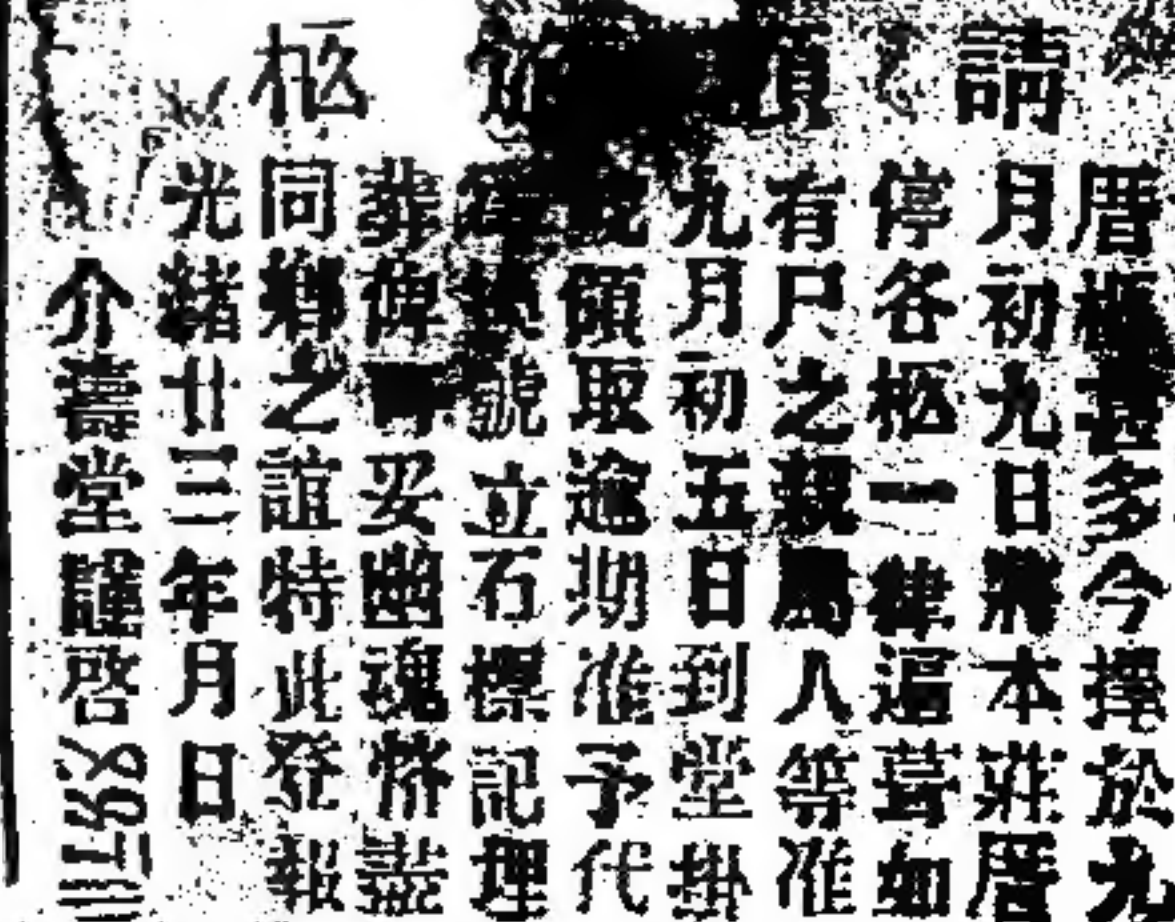 請領柩
厝柩甚多今擇於九
月初九日將本莊厝
停各柩一律葬如
有尸之親屬人等准
九月初五日到堂掛
領取逾期准予代
號立石標記埋
葬俾妥幽魂盡
同鄉之誼特此登報
光緒廿三年月日
介壽堂謹啓